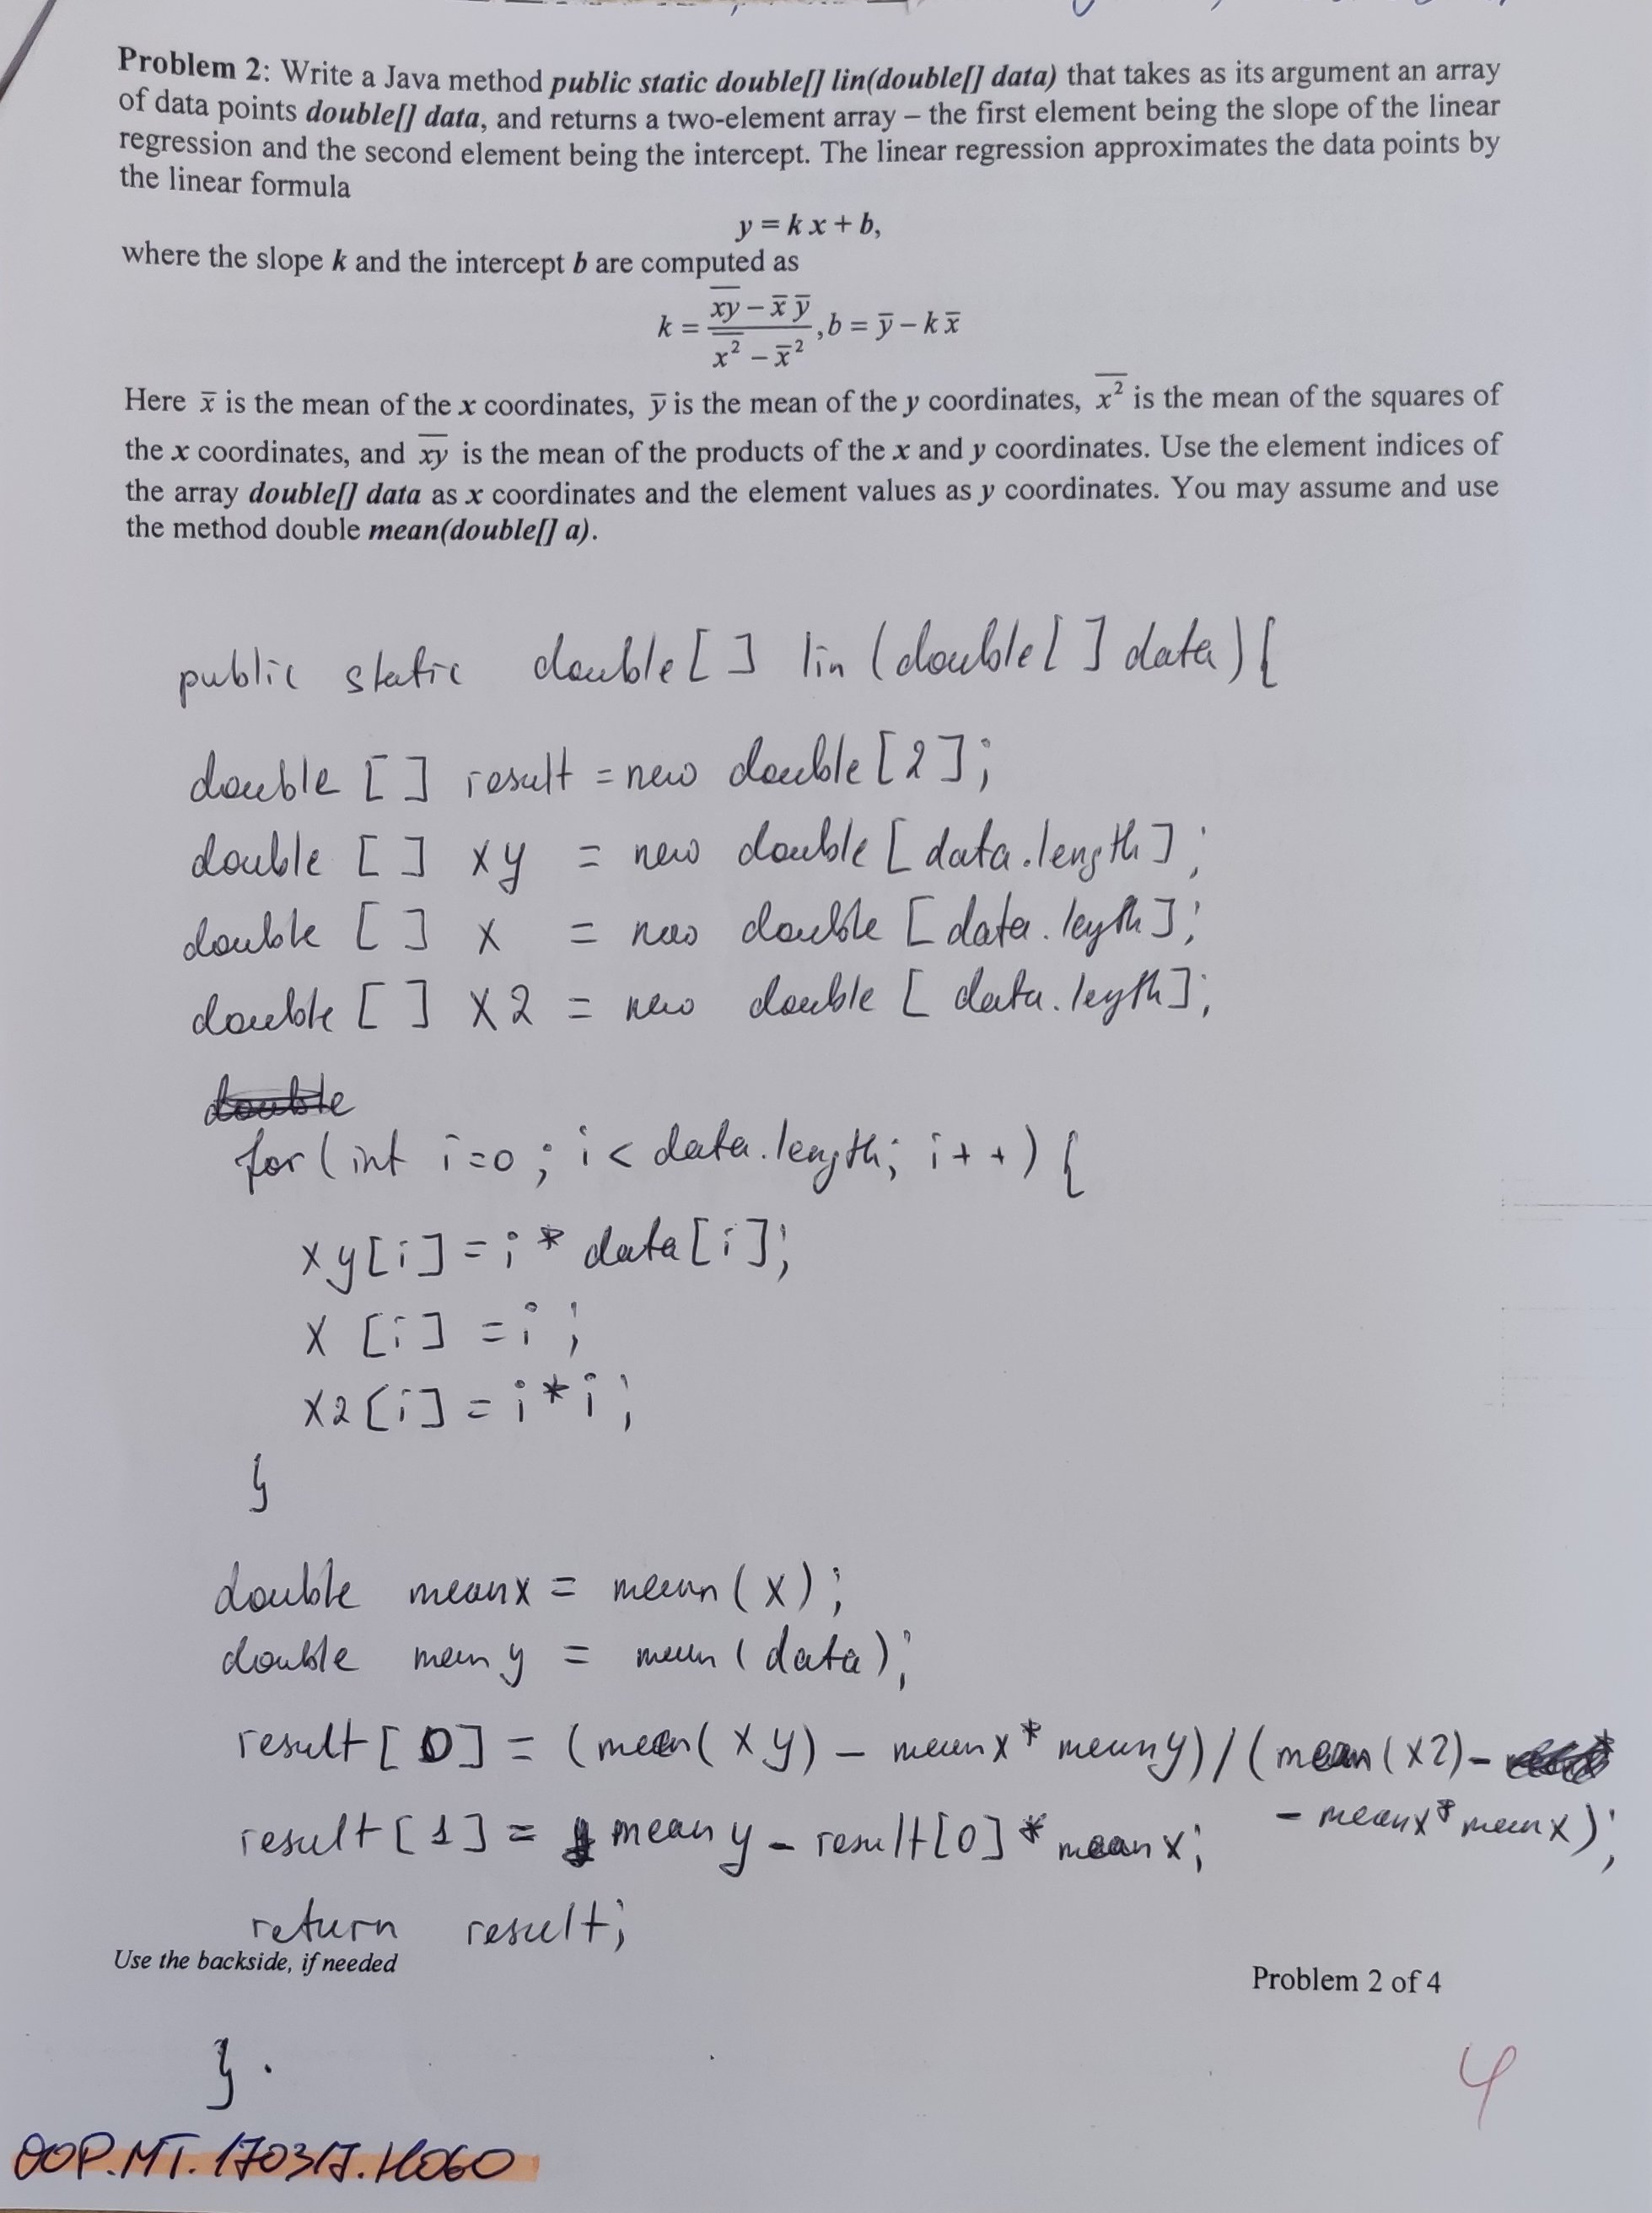 Problem 2: Write a Java method public static double[] lin(double[] data) that takes as its argument an array
of data points double[] data, and returns a two-element array – the first element being the slope of the linear
regression and the second element being the intercept. The linear regression approximates the data points by
the linear formula
y = k x + b,
where the slope k and the intercept b are computed as
k = (x̅y̅ – x̅ y̅) / (x̅²̅ – x̅²), b = y̅ – k x̅
Here x̅ is the mean of the x coordinates, y̅ is the mean of the y coordinates, x̅²̅ is the mean of the squares of
the x coordinates, and x̅y̅ is the mean of the products of the x and y coordinates. Use the element indices of
the array double[] data as x coordinates and the element values as y coordinates. You may assume and use
the method double mean(double[] a).
public static double[ ] lin (double[ ] data) {
double [ ] result = new double [2];
double [ ] xy = new double [data.length];
double [ ] x = new double [data.length];
double [ ] x2 = new double [data.length];
double
for (int i=0; i < data.length; i++) {
xy[i] = i * data[i];
x [i] = i;
x2[i] = i*i;
}
double meanx = mean(x);
double meany = mean(data);
result[0] = (mean(xy) – meanx * meany) / (mean(x2) –
– meanx * meanx);
result[1] = meany – result[0] * meanx;
return result;
Use the backside, if needed
Problem 2 of 4
}.
4
OOP.MT.170317.H060